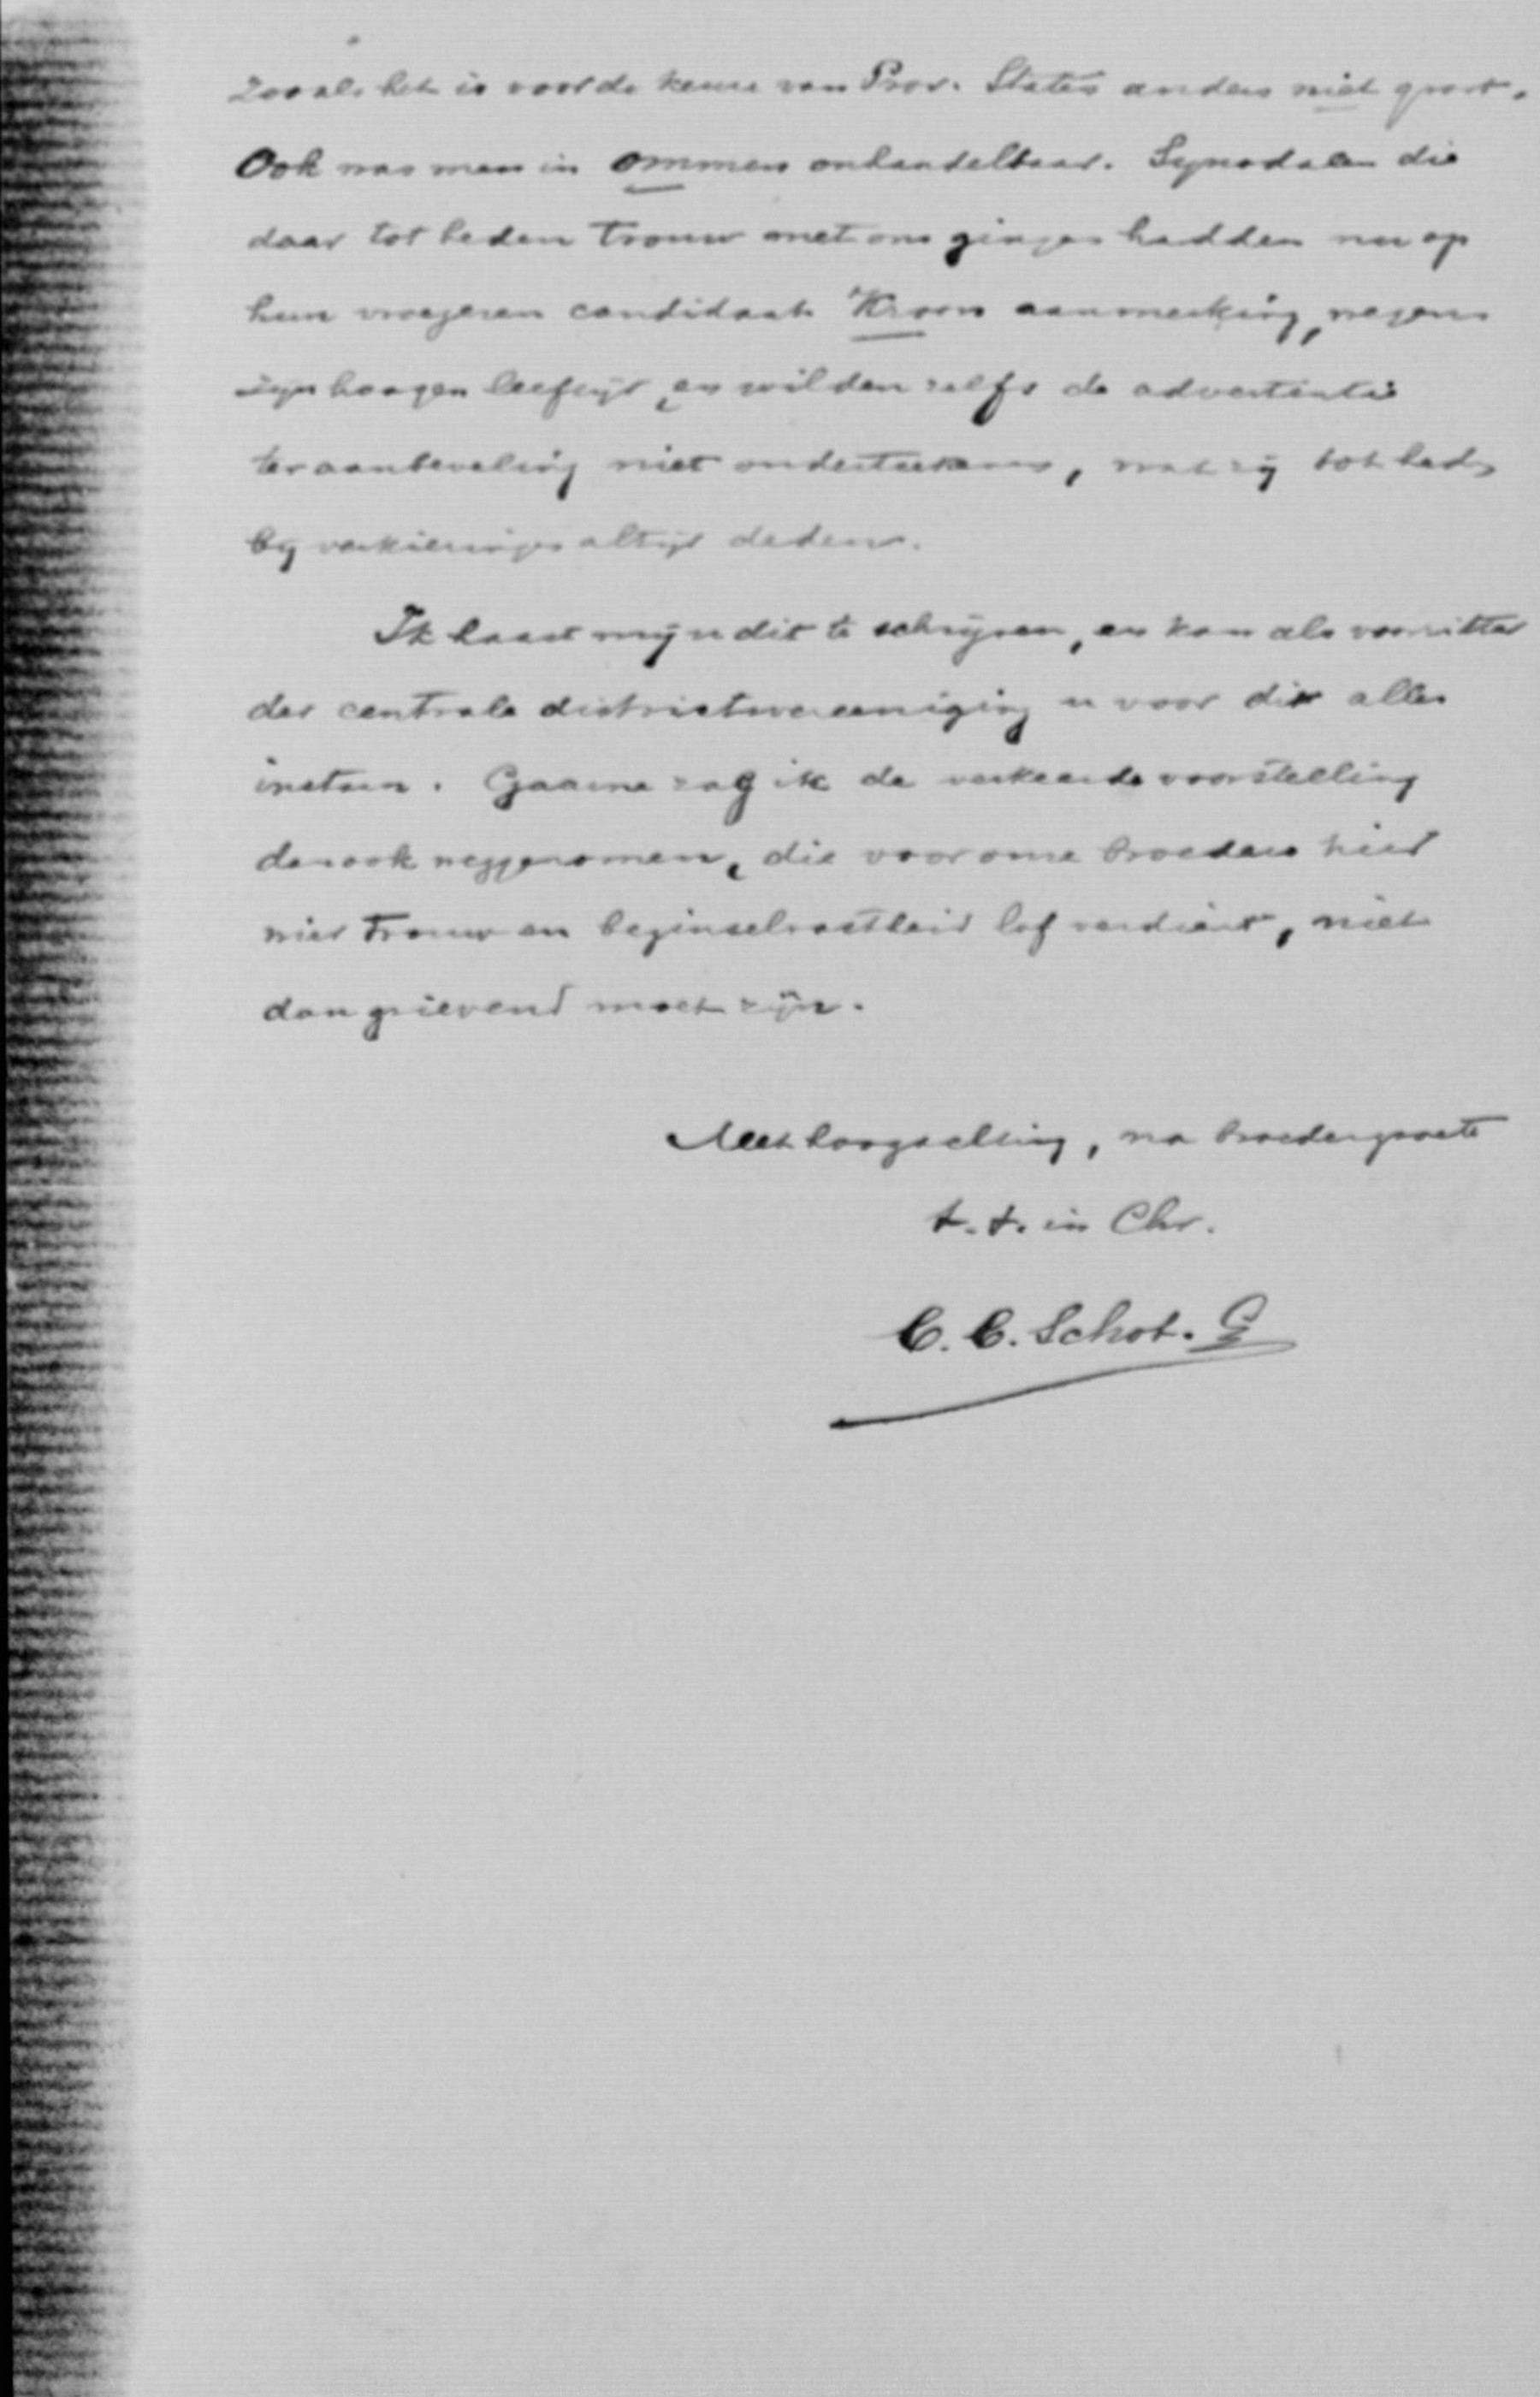 Zooals het is voor de keuze van Prov. Staten anders niet groot.
Ook was men in Ommen onhandelbaar. Synodalen die
daar tot heden trouw met ons gingen hadden nu op
hun vroegeren candidaat Kroon aanmerking, wegens
zijn hoogen leeftijd, en wilden zelfs de advertentie
ter aanbeveling niet onderteekenen, wat zij tot heden
bij verkiezingen altijd deden.
Ik haast mij u dit te schrijven, en kan als voorzitter
der centrale districtsvereeniging u voor dit alles
instaan. Gaarne zag ik de verkeerde voorstelling
dan ook weggenomen, die voor onze broeders hier
wier trouw en beginselvastheid lof verdient, niet
dan grievend moet zijn.
Met hoogachting, na broedergroete
t. t. in Chr.
C. C. Schot. G